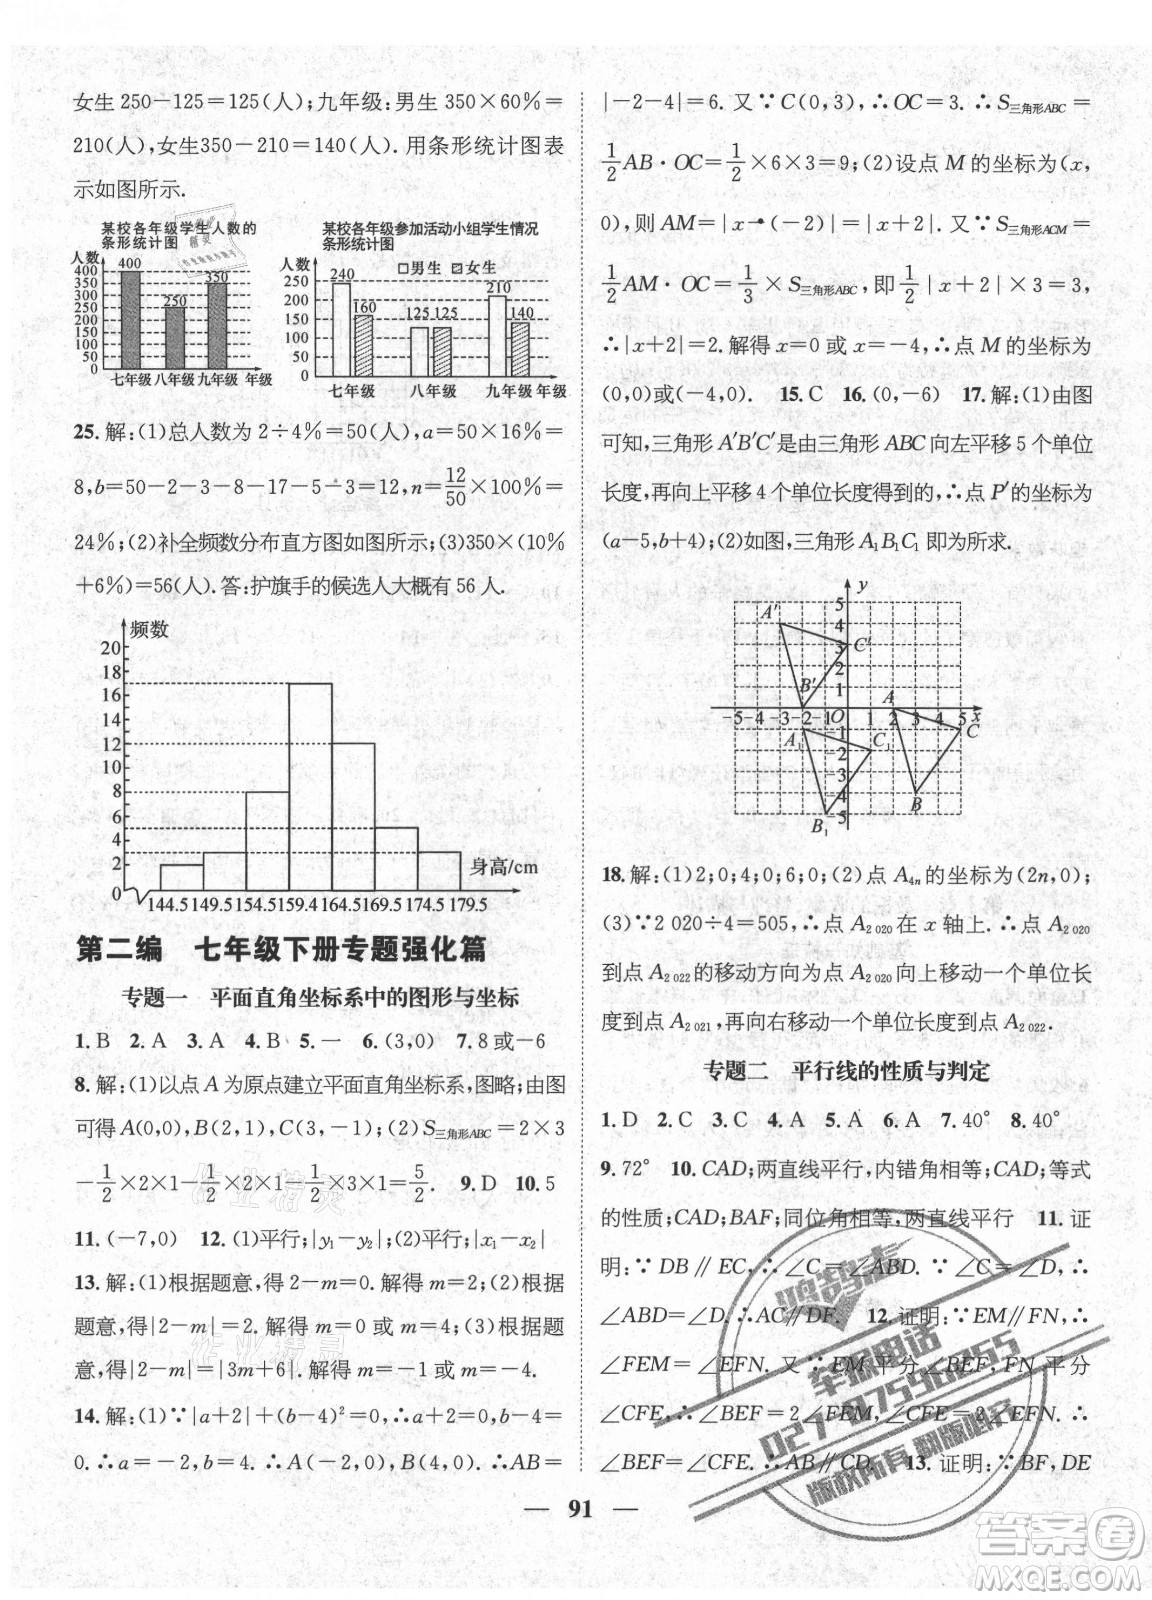 女生 250-125=125(人);九年级:男生 350×60%=
210(人),女生350-210=140(人). 用条形统计图表
示如图所示.
某校各年级学生人数的
条形统计图
人数
400
350
300
250
200
150
100
50
0
400
250
350
七年级 八年级 九年级 年级
某校各年级参加活动小组学生情况
条形统计图
人数
□男生 ▨女生
250
200
150
100
50
0
240
160
125
125
210
140
七年级 八年级 九年级 年级
25. 解:(1)总人数为 2÷4%=50(人),a=50×16%=
8,b=50-2-3-8-17-5-3=12,n=12/50×100%=
24%;(2)补全频数分布直方图如图所示;(3)350×(10%
+6%)=56(人). 答:护旗手的候选人大概有 56 人.
频数
20
18
16
14
12
10
8
6
4
2
0
身高/cm
144.5 149.5 154.5 159.4 164.5 169.5 174.5 179.5
第二编 七年级下册专题强化篇
专题一 平面直角坐标系中的图形与坐标
1. B 2. A 3. A 4. B 5. 一 6. (3,0) 7. 8 或-6
8. 解:(1)以点 A 为原点建立平面直角坐标系,图略;由图
可得 A(0,0),B(2,1),C(3,-1);(2)S三角形ABC=2×3
-1/2×2×1-1/2×2×1-1/2×3×1=5/2. 9. D 10. 5
11. (-7,0) 12. (1)平行;|y₁-y₂|;(2)平行;|x₁-x₂|
13. 解:(1)根据题意,得 2-m=0. 解得 m=2;(2)根据
题意,得|2-m|=2. 解得 m=0 或 m=4;(3)根据题
意,得|2-m|=|3m+6|. 解得 m=-1 或 m=-4.
14. 解:(1)∵|a+2|+(b-4)²=0,∴a+2=0,b-4=
0.∴a=-2,b=4.∴A(-2,0),B(4,0).∴AB=
|-2-4|=6. 又∵C(0,3),∴OC=3.∴S三角形ABC=
1/2AB·OC=1/2×6×3=9;(2)设点 M 的坐标为(x,
0),则 AM=|x-(-2)|=|x+2|. 又∵S三角形ACM=
1/2AM·OC=1/3×S三角形ABC,即1/2|x+2|×3=3,
∴|x+2|=2. 解得 x=0 或 x=-4,∴点 M 的坐标为
(0,0)或(-4,0). 15. C 16. (0,-6) 17. 解:(1)由图
可知,三角形 A′B′C′是由三角形 ABC 向左平移 5 个单位
长度,再向上平移 4 个单位长度得到的,∴点 P′的坐标为
(a-5,b+4);(2)如图,三角形 A₁B₁C₁ 即为所求.
y
5
4
3
2
1
A′
C′
B′
A
-5 -4 -3 -2 -1 O 1 2 3 4 5 x
-1
-2
-3
-4
-5
A₁
C₁
C
B
B₁
18. 解:(1)2;0;4;0;6;0;(2)点 A₄ₙ的坐标为(2n,0);
(3)∵2 020÷4=505,∴点 A₂ ₀₂₀在 x 轴上.∴点 A₂ ₀₂₀
到点 A₂ ₀₂₂的移动方向为向上移动一个单位长
度到点 A₂ ₀₂₁,再向右移动一个单位长度到点 A₂ ₀₂₂.
专题二 平行线的性质与判定
1. D 2. C 3. C 4. A 5. A 6. A 7. 40° 8. 40°
9. 72° 10. CAD;两直线平行,内错角相等;CAD;等式
的性质;CAD;BAF;同位角相等,两直线平行 11. 证
明:∵DB∥EC,∴∠C=∠ABD. ∵∠C=∠D,∴
∠ABD=∠D.∴AC∥DF. 12. 证明:∵EM∥FN,∴
∠FEM=∠EFN. 又∵EM 平分∠BEF,FN 平分
∠CFE,∴∠BEF=2∠FEM,∠CFE=2∠EFN.∴
∠BEF=∠CFE.∴AB∥CD. 13. 证明:∵BF,DE
鸿鹄志
举报电话
027-87596855
版权所有 翻版必究
作业精灵
作业精灵
— 91 —
答案卷
MXQE.COM